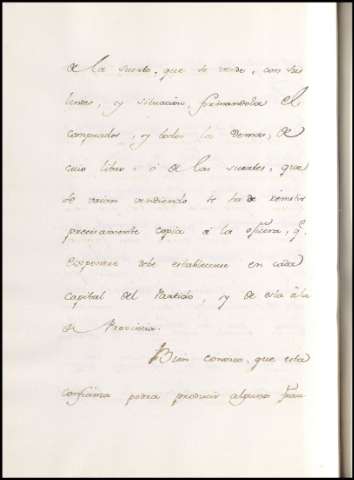 de la suerte, que se vende, con sus
lindes, y situacion, firmandola el
comprador, y todos los demas, de
cuio libro, ó de las suertes, que
se vaian vendiendo se ha de remitir
precisamente copia à la oficina, q.
dispone debe establecerse en cada
capital del Partido, y de esta à la
de Provincia.
Bien conozco, que esta
confianza podra producir alguno frau